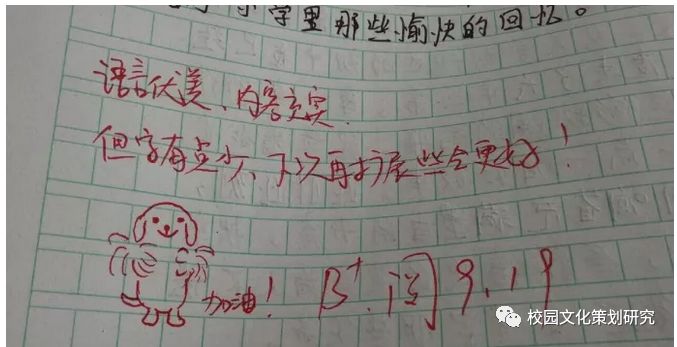 小学里那些愉快的回忆。
语言优美、内容充实.
但字有点少、下次再扩展些会更好！
加油！ B+. 阅 9.19
校园文化策划研究